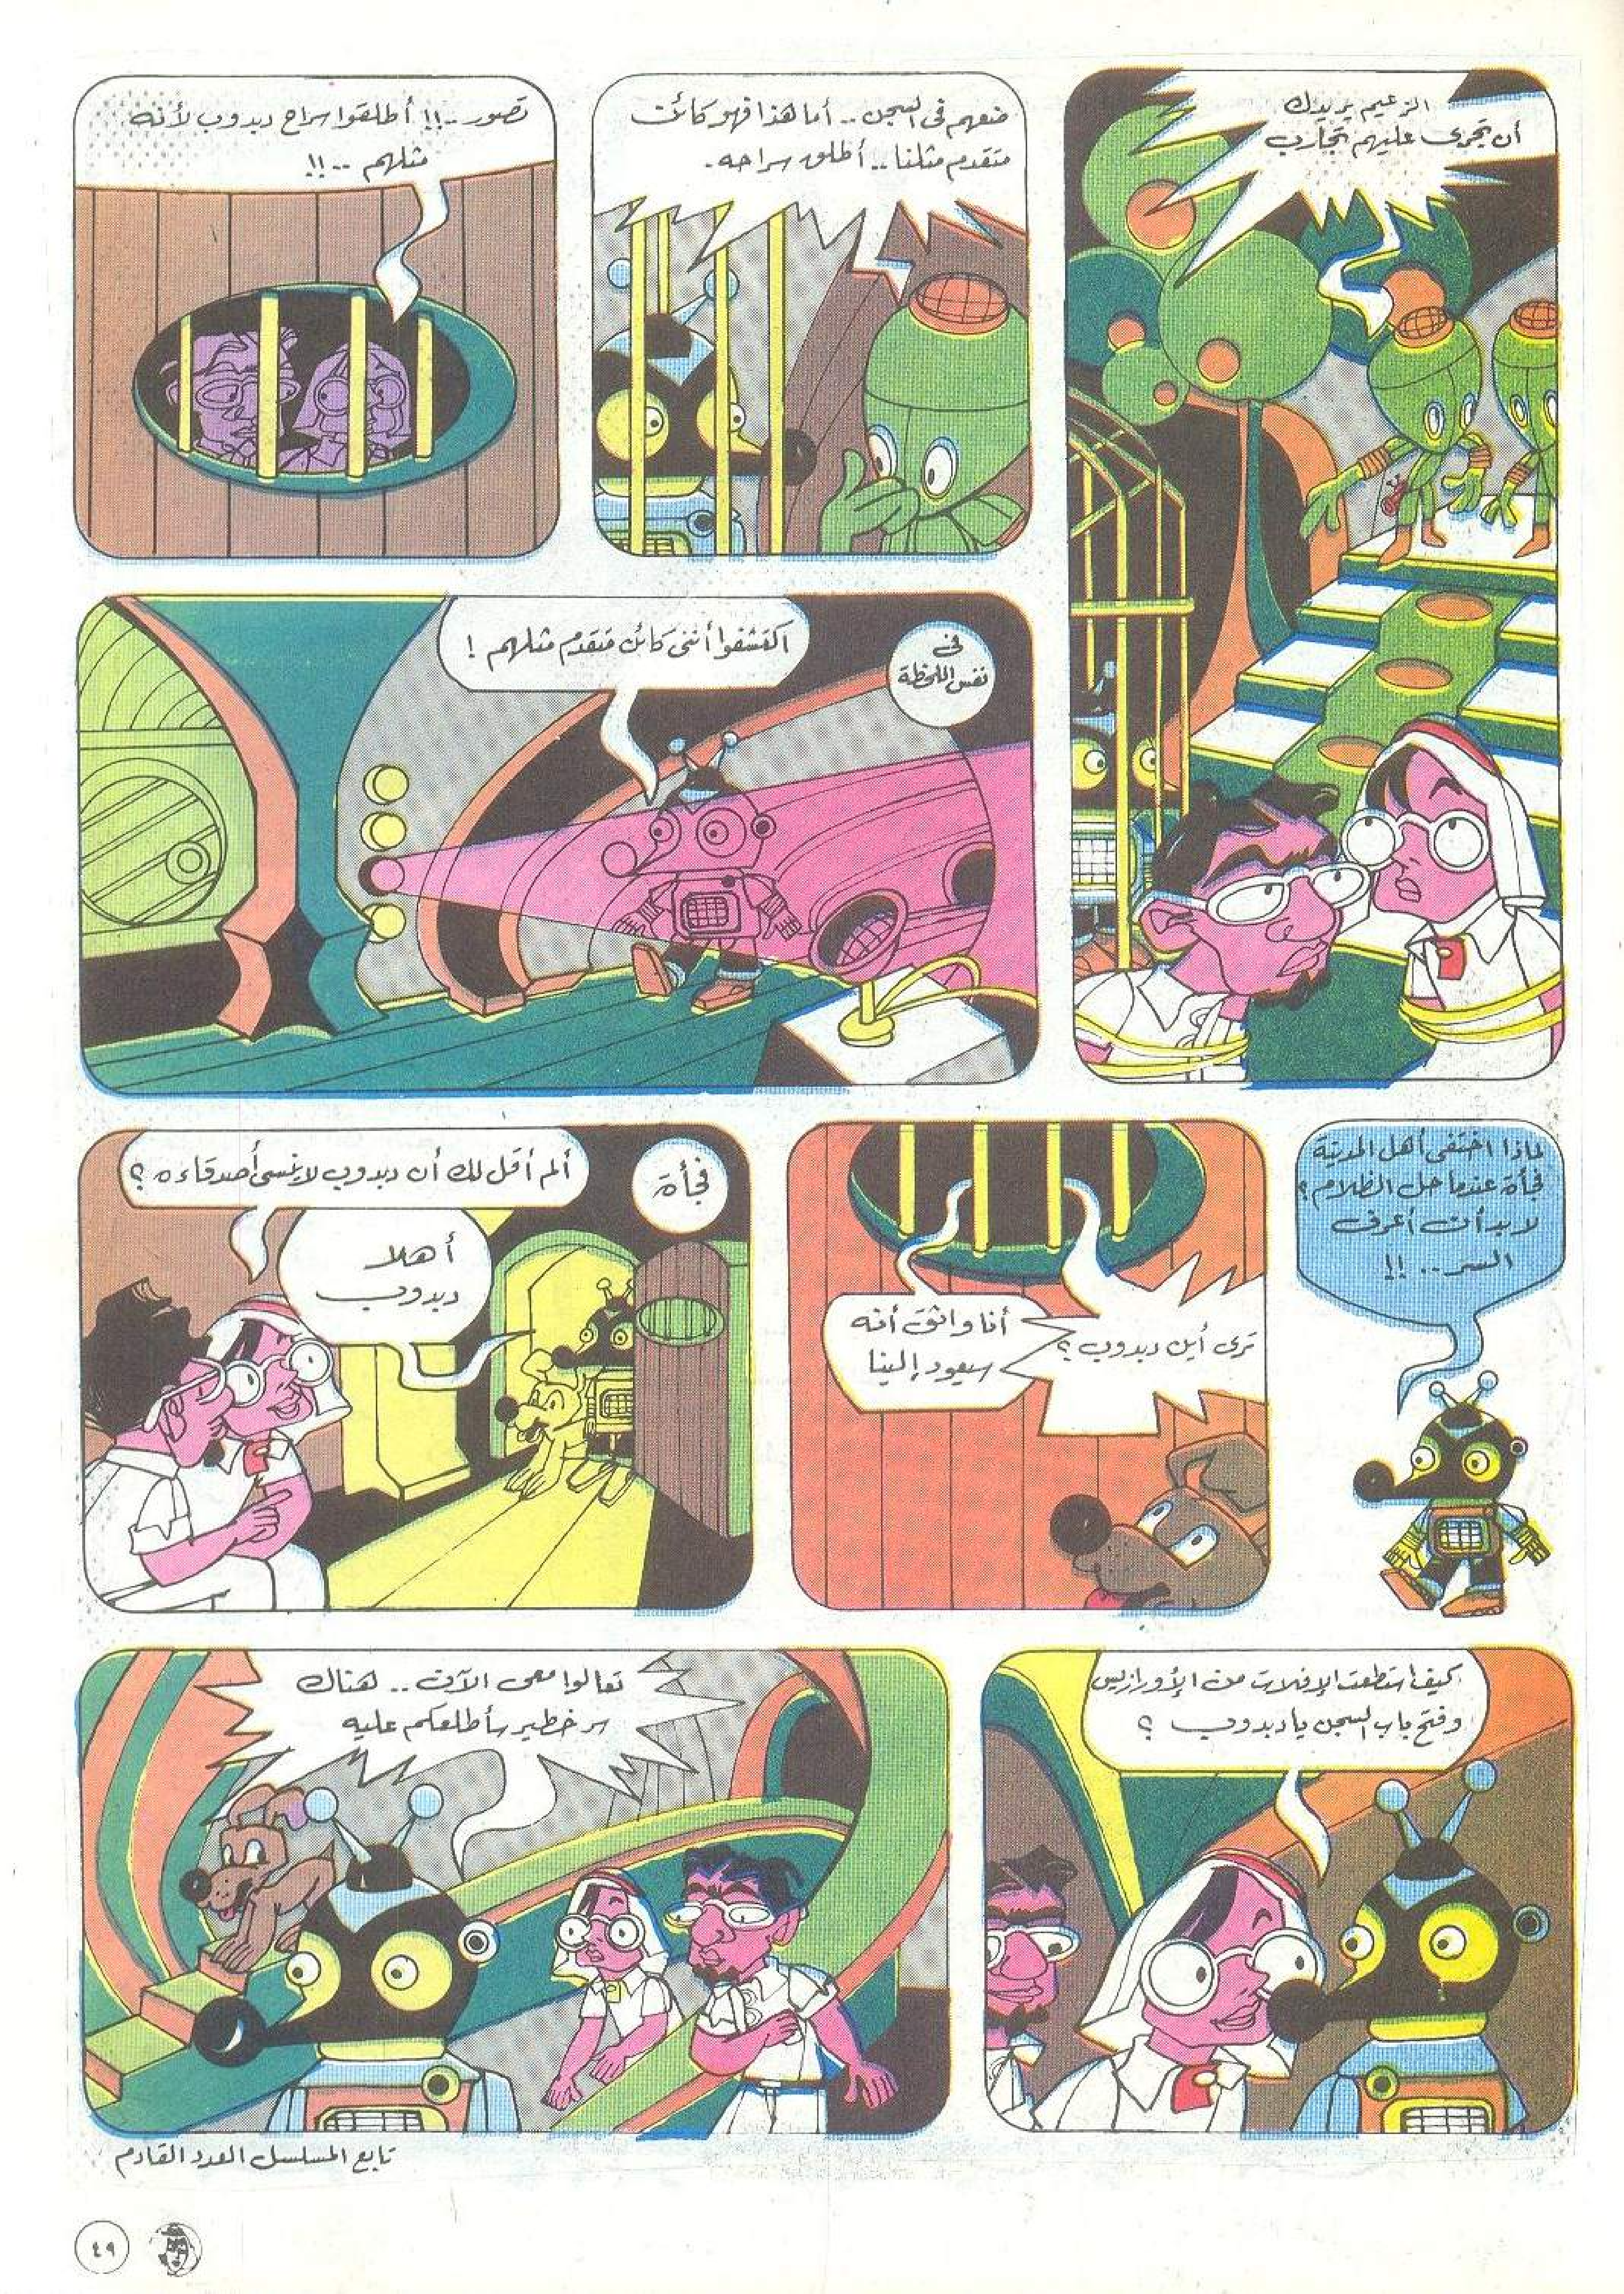 الزعيم يريدك
أن تجرى عليهم تجارب
ضعهم فى السجن .. أما هذا فهو كائن
متقدم مثلنا .. أطلق سراحه .
تصور ..!! أطلقوا سراح دبدوب لأنه
مثلهم ..!!
فى
نفس اللحظة
اكتشفوا أننى كائن متقدم مثلهم !
لماذا اختفى أهل المدينة
فجأة عندما حل الظلام ؟
لا بد أن أعرف
السر .. !!
ترى أين دبدوب ؟
أنا واثق أنه
سيعود إلينا
فجأة
ألم أقل لك أن دبدوب لا ينسى أصدقاءه ؟
أهلا
دبدوب
كيف استطعت الإفلات من الأورازيس
وفتح باب السجن يا دبدوب ؟
تعالوا معى الآن .. هناك
سر خطير سأطلعكم عليه
تابع المسلسل العدد القادم
٤٩